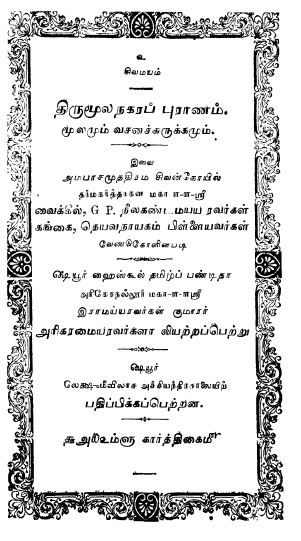 உ
சிவமயம்
திருமூலநகரப் புராணம்.
மூலமும் வசனச்சுருக்கமும்.
இவை
அம்பாசமுத்திரம் சிவன்கோயில்
தர்மகர்த்தர்களான மகா-ள-ள-ஸ்ரீ
வைக்கீல், G P. நீலகண்டமய்ய ரவர்கள்
கங்கை, தெய்வநாயகம் பிள்ளையவர்கள்
வேண்டுகோளின்படி
ஷெயூர் ஹைஸ்கூல் தமிழ்ப் பண்டிதர்
அரிகேசநல்லூர் மகா-ள-ள-ஸ்ரீ
இராமய்யரவர்கள் குமாரர்
அரிகரமையரவர்களால் இயற்றப்பெற்று
ஷெயூர்
லேக்ஷ்மீவிலாச அச்சியந்திரசாலையிற்
பதிப்பிக்கப்பெற்றன.
கார்த்திகைமீ